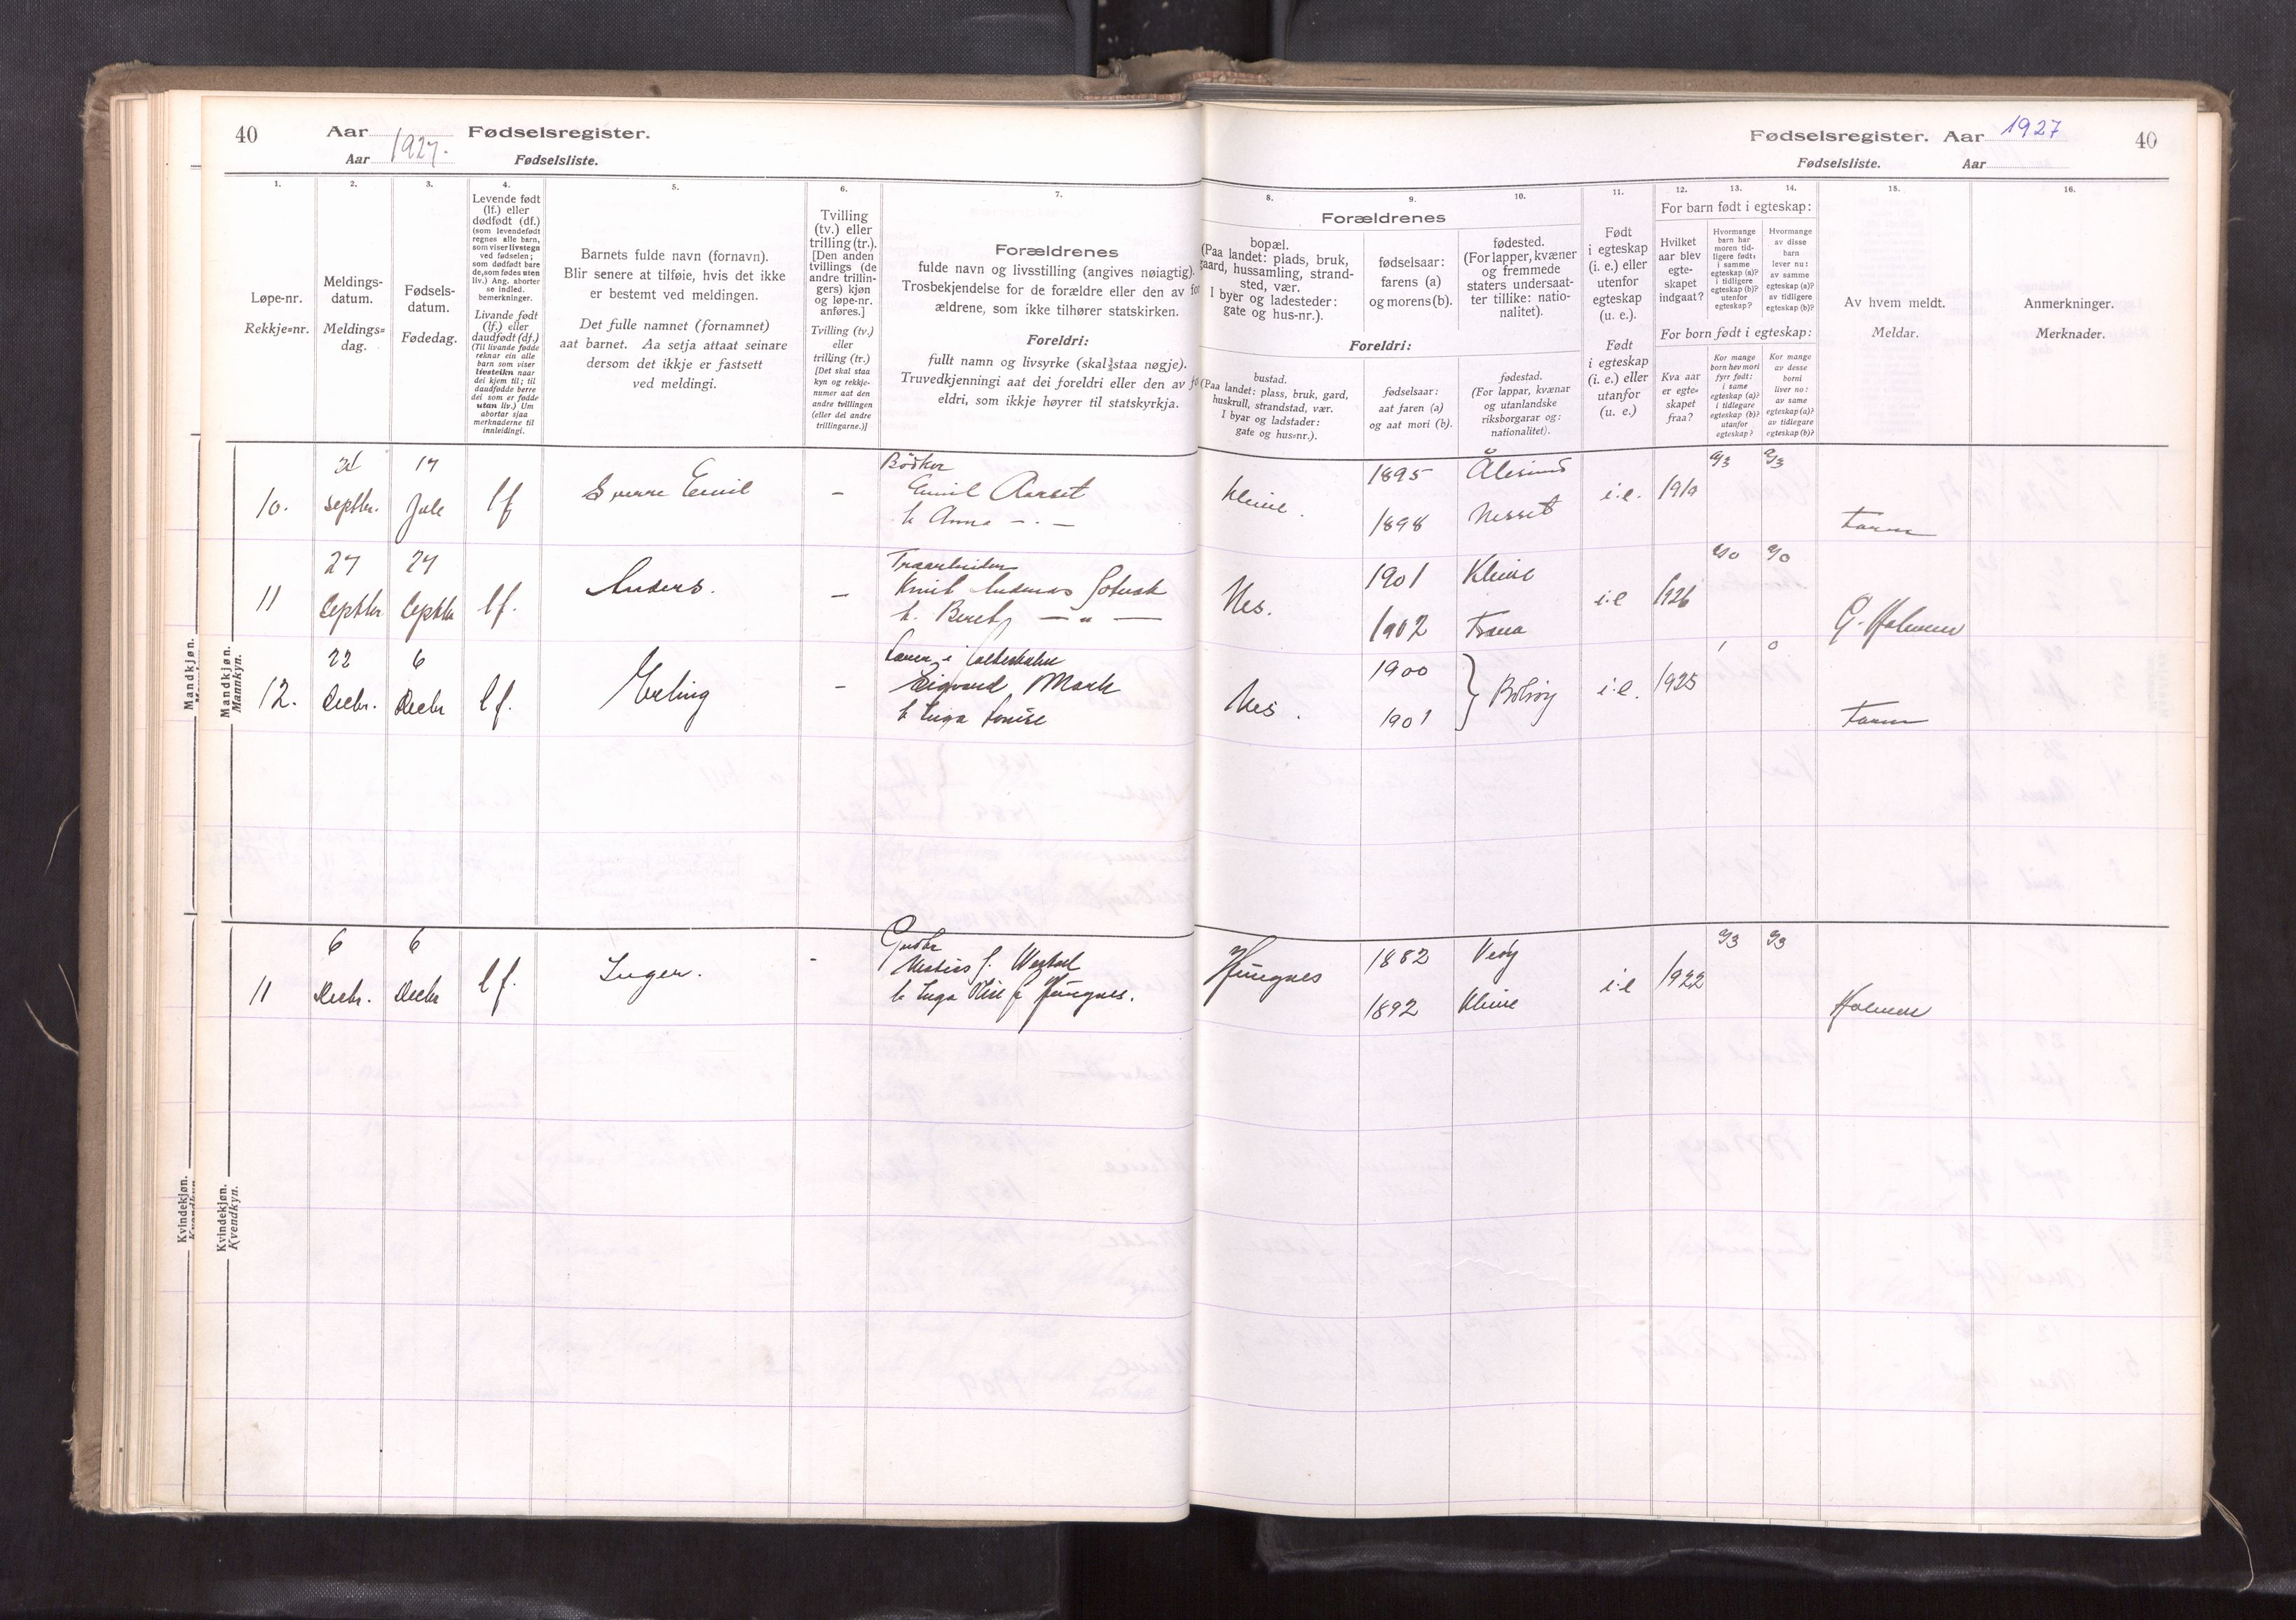 40 Aar 1927. Fødselsregister.
Aar Fødselsliste.
Fødselsregister. Aar 1927 40
Fødselsliste. Aar
1. 2. 3. 4. 5. 6. 7. 8. 9. 10. 11. 12. 13. 14. 15. 16.
Løpe-nr.
Rekkje=nr.
Meldings-
datum.
Meldings=
dag.
Fødsels-
datum.
Fødedag.
Levende født
(lf.) eller
dødfødt (df.)
(som levendefødt
regnes alle barn,
som viser livstegn
ved fødselen;
som dødfødt bare
de, som fødes uten
liv.) Ang. aborter
se indled.
bemerkninger.
Livande født
(lf.) eller
daudfødt (df.)
(Til livande fødde
reknar ein alle
barn som viser
livsteikn naar
dei kjem til; til
daudfødde berre
dei som er fødde
utan liv.) Um
abortar sjaa
merknaderne til
innleidingi.
Barnets fulde navn (fornavn).
Blir senere at tilføie, hvis det ikke
er bestemt ved meldingen.
Det fulle namnet (fornamnet)
aat barnet. Aa setja attaat seinare
dersom det ikkje er fastsett
ved meldingi.
Tvilling
(tv.) eller
trilling (tr.).
[Den anden
tvillings (de
andre trillin-
gers) kjøn
og løpe-nr.
anføres.]
Tvilling (tv.)
eller
trilling (tr.)
[Det skal staa
kyn og rekkje-
numer aat den
andre tvillingen
(eller dei andre
trillingarne.)]
Forældrenes
fulde navn og livsstilling (angives nøiagtig).
Trosbekjendelse for de forældre eller den av for
ældrene, som ikke tilhører statskirken.
Foreldri:
fullt namn og livsyrke (skal staa nøgje).
Truvedkjenningi aat dei foreldri eller den av fo
eldri, som ikkje høyrer til statskyrkja.
Forældrenes
bopæl.
(Paa landet: plads, bruk,
gaard, hussamling, strand-
sted, vær.
I byer og ladesteder:
gate og hus-nr.).
fødselsaar:
faren (a)
og morens (b).
fødested.
(For lapper, kvæner
og fremmede
staters undersaat-
ter tillike: natio-
nalitet).
Foreldri:
bustad.
(Paa landet: plass, bruk, gard,
huskrull, strandstad, vær.
I byar og ladstader:
gate og hus=nr.).
fødselsaar:
aat faren (a)
og aat mori (b).
fødestad.
(For lappar, kvænar
og utanlandske
riksborgarar og:
nationalitet).
Født
i egteskap
(i. e.) eller
utenfor
egteskap
(u. e.).
Født
i egteskap
(i. e.) eller
utanfor
(u. e.)
For barn født i egteskap:
Hvilket
aar blev
egte-
skapet
indgaat?
Hvormange
barn har
moren tid-
ligere født:
i samme
egteskap (a)?
i tidligere
egteskap (b)?
utenfor
egteskap?
Hvormange
av disse
barn
lever nu:
av samme
egteskap (a)?
av tidligere
egteskap (b)?
For born født i egteskap:
Kva aar
er egte=
skapet
fraa?
Kor mange
born hev mori
fyrr født:
i same
egteskap (a)?
i tidlegare
egteskap (b)?
utanfor
egteskap?
Kor mange
av desse
borni
liver no:
av same
egteskap (a)?
av tidlegare
egteskap (b)?
Av hvem meldt.
Meldar.
Anmerkninger.
Merknader.
Mandkjøn.
Mandkjøn.
Mannkyn.
Bödker
10. Septbr. 17 Jule lf Sverre Emil – Emil Aarset
h Anna – . –
Kleive. 1895 Ålesund i.e. 1919 a/3 a/3
1898 Nesset
Faren
11 27 Septbr 27 Septbr lf. Anders. – Knut Andreas
h. Beret — " —
Nes. 1901 Kleive i.e 1926 a/0 a/0
1902 Fræna
G. Holmen
12. 22 Decbr. 6 Decbr lf. Erling – Sigvard Mork
h Inga Louise
Nes. 1900 Bolsöy i.e. 1925 1 0
1901
Faren
Kvindekjøn.
Kvindekjøn.
Kvendkyn.
Grdbr
11 6 Decbr. 6 Decbr lf. Inger. -
h Inga
Hungnes 1882 Veöy i.e 1922 a/3 a/3
1892 Kleive
Holmen